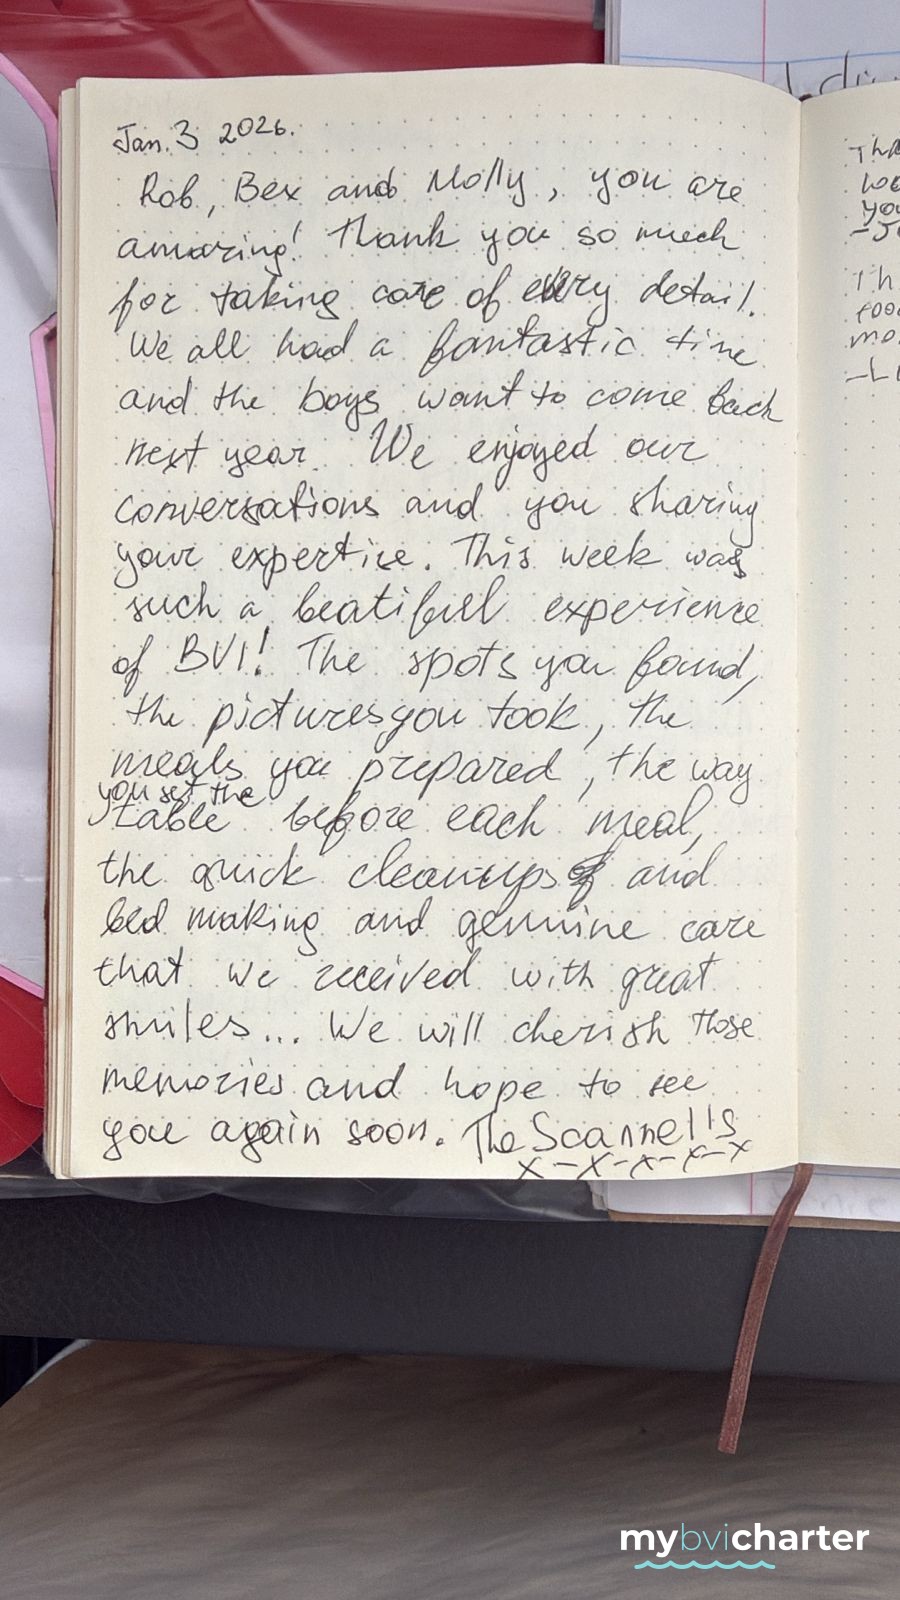 Jan. 3 2026.
Rob, Bex and Molly, you are
amazing! Thank you so much
for taking care of every detail.
We all had a fantastic time
and the boys want to come back
next year. We enjoyed our
conversations and you sharing
your expertise. This week was
such a beatifull experience
of BVI! The spots you found,
the pictures you took, the
meals you prepared, the way
you set the
table before each meal,
the quick cleanups and
bed making and genuine care
that we received with great
smiles... We will cherish those
memories and hope to see
you again soon. The Scannells
x - x - x - x - x
mybvicharter